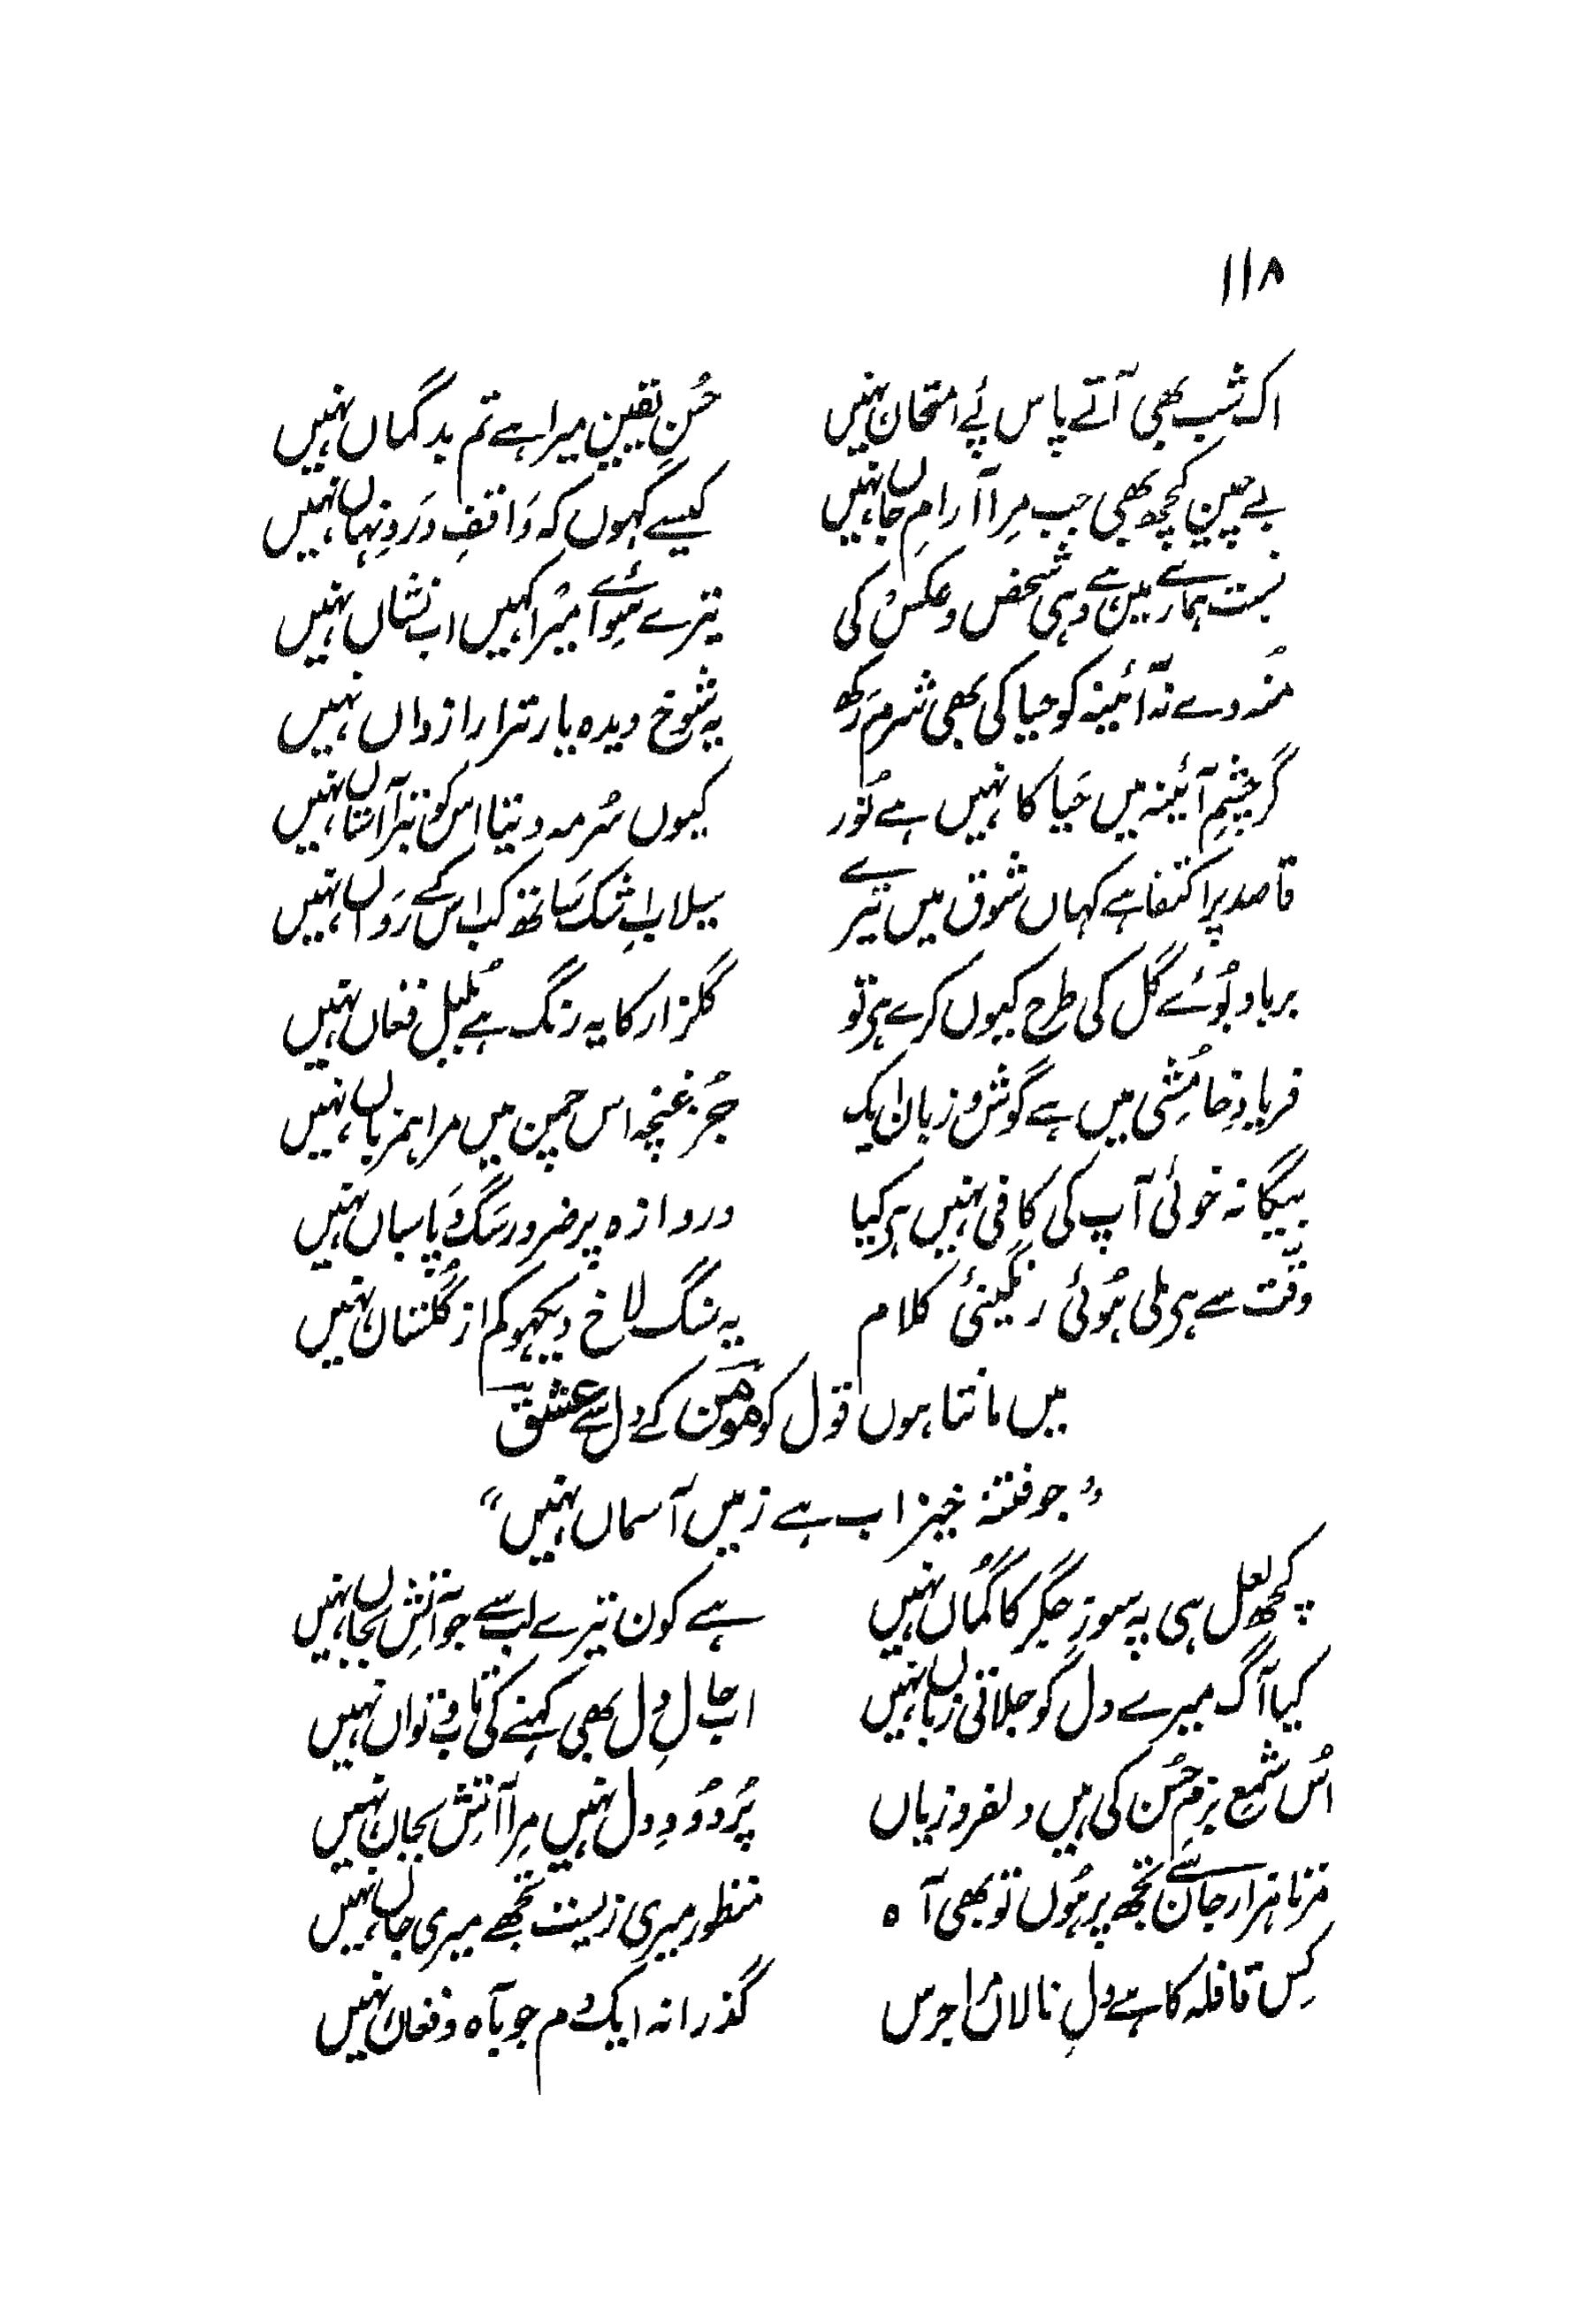 ۱۱۸
اک شب بھی آتے پاس پئے امتحان نہیں حُسنِ یقین میرا ہے تم بدگماں نہیں
بے چین کچھ بھی جب مِرا آرامِ جاں نہیں کیسے کہوں کہ وَاقفِ دَردِ نہاں نہیں
نسبت ہمارے میں ہے وہی شخص و عکس کی تیرے سِوائے میرا کہیں اب نشاں نہیں
مُنہ دے نہ آئینہ کو حیا کی بھی شرم رَکھ یہ شوخ دیدہ یار ترا رازداں نہیں
گر چشمِ آئینہ میں حَیا کا نہیں ہے نُور کیوں سُرمہ دیتا اس کو ترا آستاں نہیں
قاصد پر اکتفا ہے کہاں شوق میں تیرے سیلابِ اشک سَاتھ کب اس کے رَواں نہیں
برباد بُوئے گل کی طرح کیوں کرے ہی تو گلزار کا یہ رنگ ہے بُلبل فغاں نہیں
فریادِ خامُشی میں ہے گوش و زبان ایک جُز غنچہ اس چمن میں مرا ہمزباں نہیں
بیگانہ خوئی آپ کی کافی نہیں ہی کیا دروازہ پر ضرور سَگ و پَاسباں نہیں
دقّت سے ہی ملی ہُوئی رنگینیٔ کلام یہ سنگ لاخ دیکھو کم از گُلستان نہیں
میں مانتا ہوں قول کو مومن کے دل سے عشق
"جو فتنہ خیز اب ہے زمیں آسماں نہیں"
کچھ لعل ہی پہ سوزِ جگر کا گُماں نہیں ہے کون تیرے لب سے جو آتش بجاں نہیں
کیا آگ میرے دل کو جلاتی زباں نہیں اب حالِ دل بھی کہنے کی تاب و تواں نہیں
اُس شمع بزمِ حُسن کی ہیں دلفروزیاں پُر دُودِ دل نہیں مِرا آتش بجاں نہیں
مرتا ہزار جان سے تجھ پر ہُوں تو بھی آہ منظور میری زیست تجھے میری جاں نہیں
کِس قافلہ کا ہے دلِ نالاں مرا جرس گذرا نہ ایک دم جو بآہ و فغاں نہیں